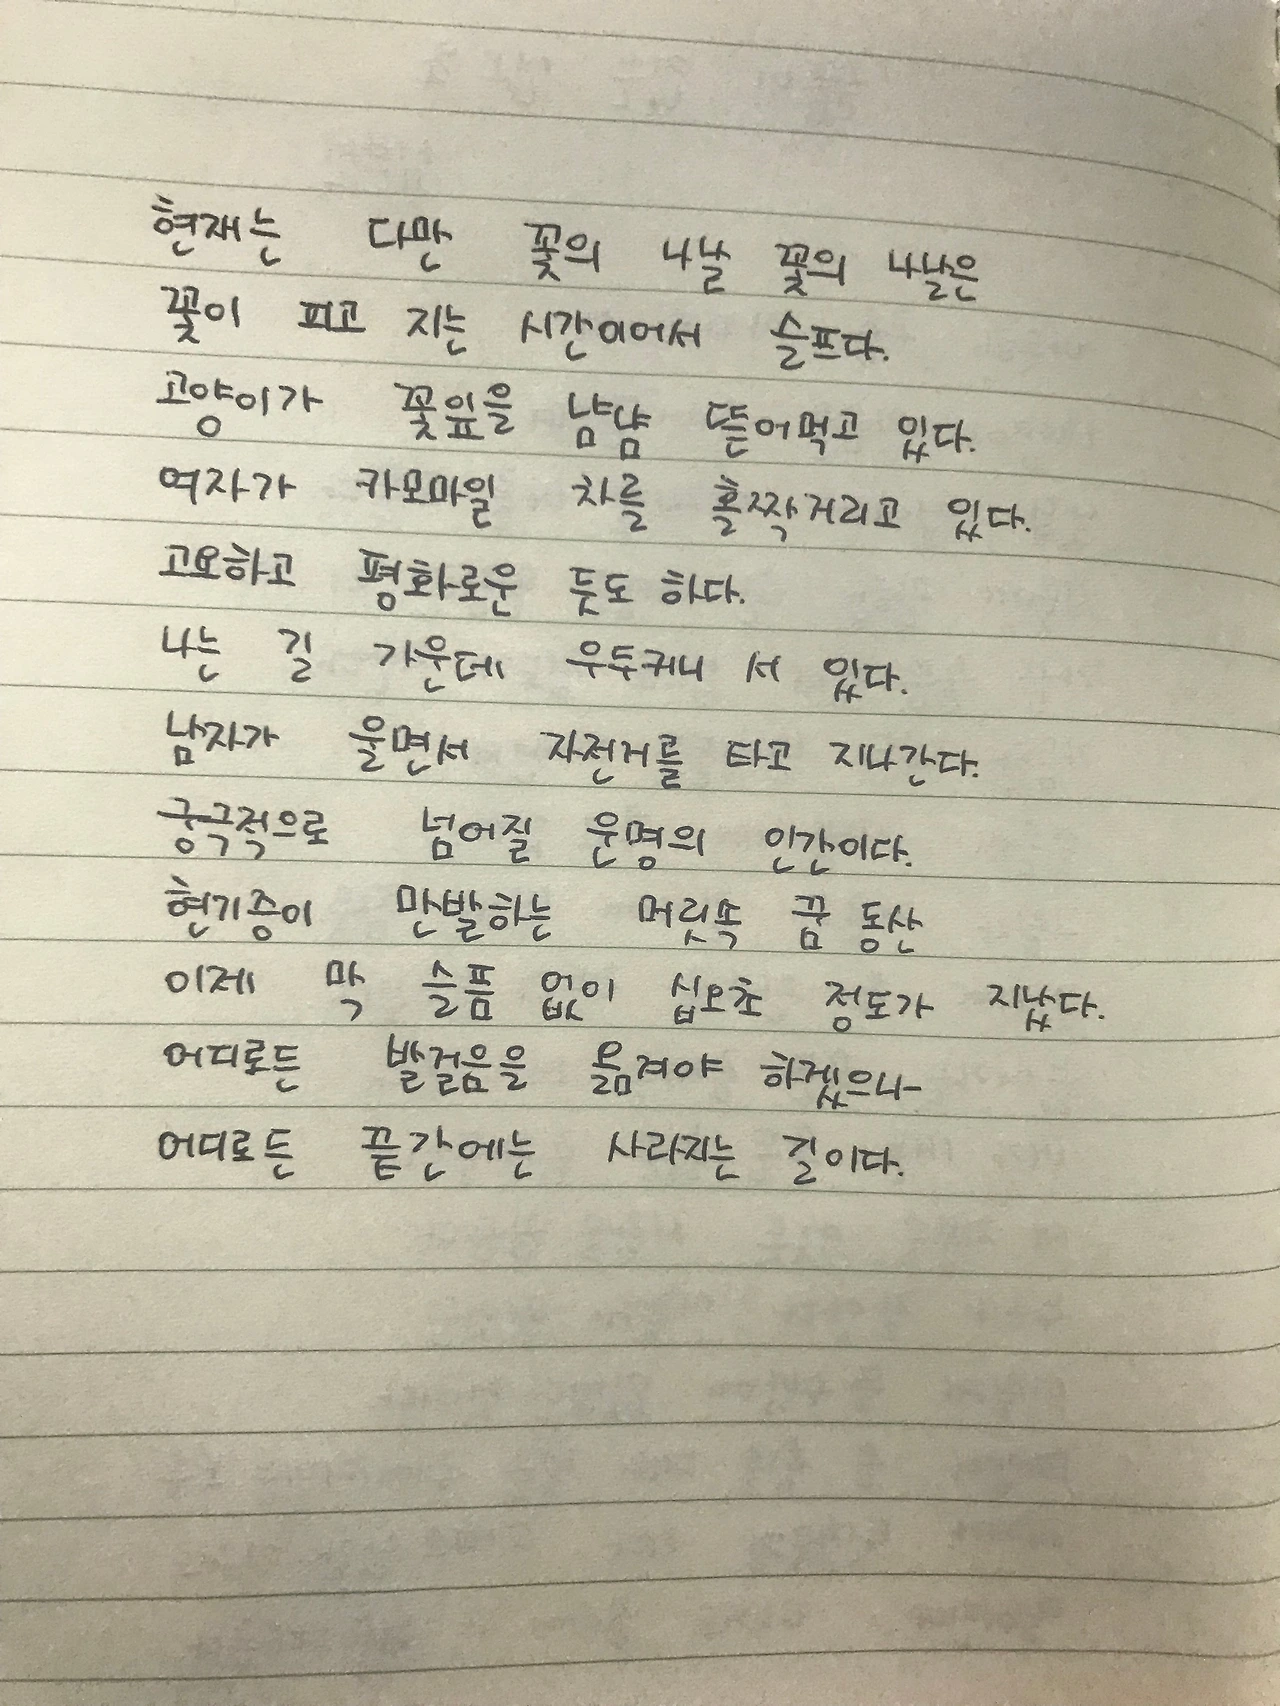 현재는 다만 꽃의 나날 꽃의 나날은
꽃이 피고 지는 시간이어서 슬프다.
고양이가 꽃잎을 냠냠 뜯어먹고 있다.
여자가 카모마일 차를 홀짝거리고 있다.
고요하고 평화로운 듯도 하다.
나는 길 가운데 우두커니 서 있다.
남자가 울면서 자전거를 타고 지나간다.
궁극적으로 넘어질 운명의 인간이다.
현기증이 만발하는 머릿속 꿈 동산
이제 막 슬픔 없이 십오초 정도가 지났다.
어디로든 발걸음을 옮겨야 하겠으나
어디로든 끝간에는 사라지는 길이다.